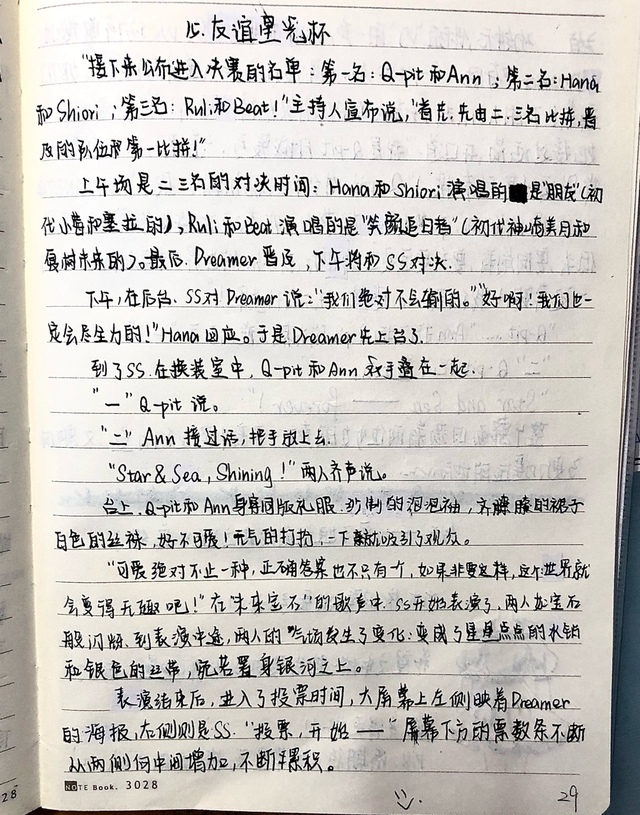 15.友谊星光杯
"接下来公布进入决赛的名单：第一名：Q-pit和Ann；第二名：Hana
和Shiori；第三名：Ruli和Beat！"主持人宣布说，"首先，先由二、三名比拼，晋
及的队伍和第一比拼！"
上午场是二三名的对决时间：Hana和Shiori演唱的是"朋友"（初
代小葵和塞拉的），Ruli和Beat演唱的是"笑颜追日者"（初代神崎美月和
夏树未来的）。最后，Dreamer晋及，下午将和SS对决。
下午，在后台，SS对Dreamer说："我们绝对不会输的。""好啊！我们也一
定会尽全力的！"Hana回应。于是Dreamer先上台了。
到了SS，在换装室中，Q-pit和Ann手叠在一起。
"一"Q-pit说。
"二"Ann接过话，把手放上去。
"Star&Sea，Shining！"两人齐声说。
台上，Q-pit和Ann身穿同版礼服，纱制的泡泡袖，齐膝的裙子
白色的丝袜，好不可爱！元气的打扮，一下就吸引了观众。
"可爱绝对不止一种，正确答案也不只有一个，如果非要这样，这个世界就
会变得无趣吧！"在"未来宝石"的歌声中，SS开始表演了，两人如宝石
般闪烁，到表演中途，两人的气场发生了变化：变成了星星点点的水钻
和银色的丝带，宛若置身银河之上。
表演结束后，进入了投票时间，大屏幕上左侧映着Dreamer
的海报，右侧则是SS。"投票，开始——"屏幕下方的票数条不断
从两侧向中间增加，不断累积。
NOTE Book. 3028
29
028